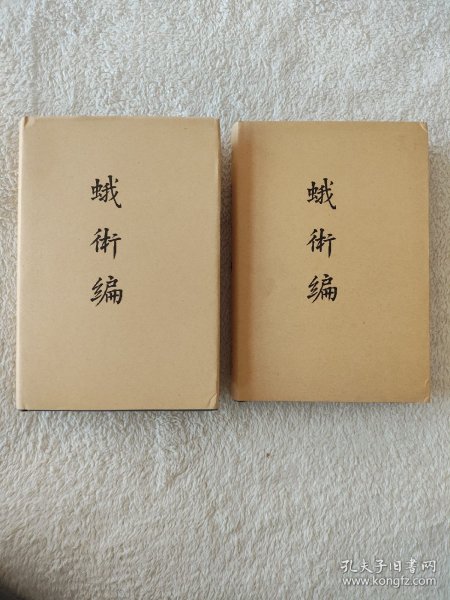 蛾術編
蛾術編
孔夫子旧书网
www.kongfz.com